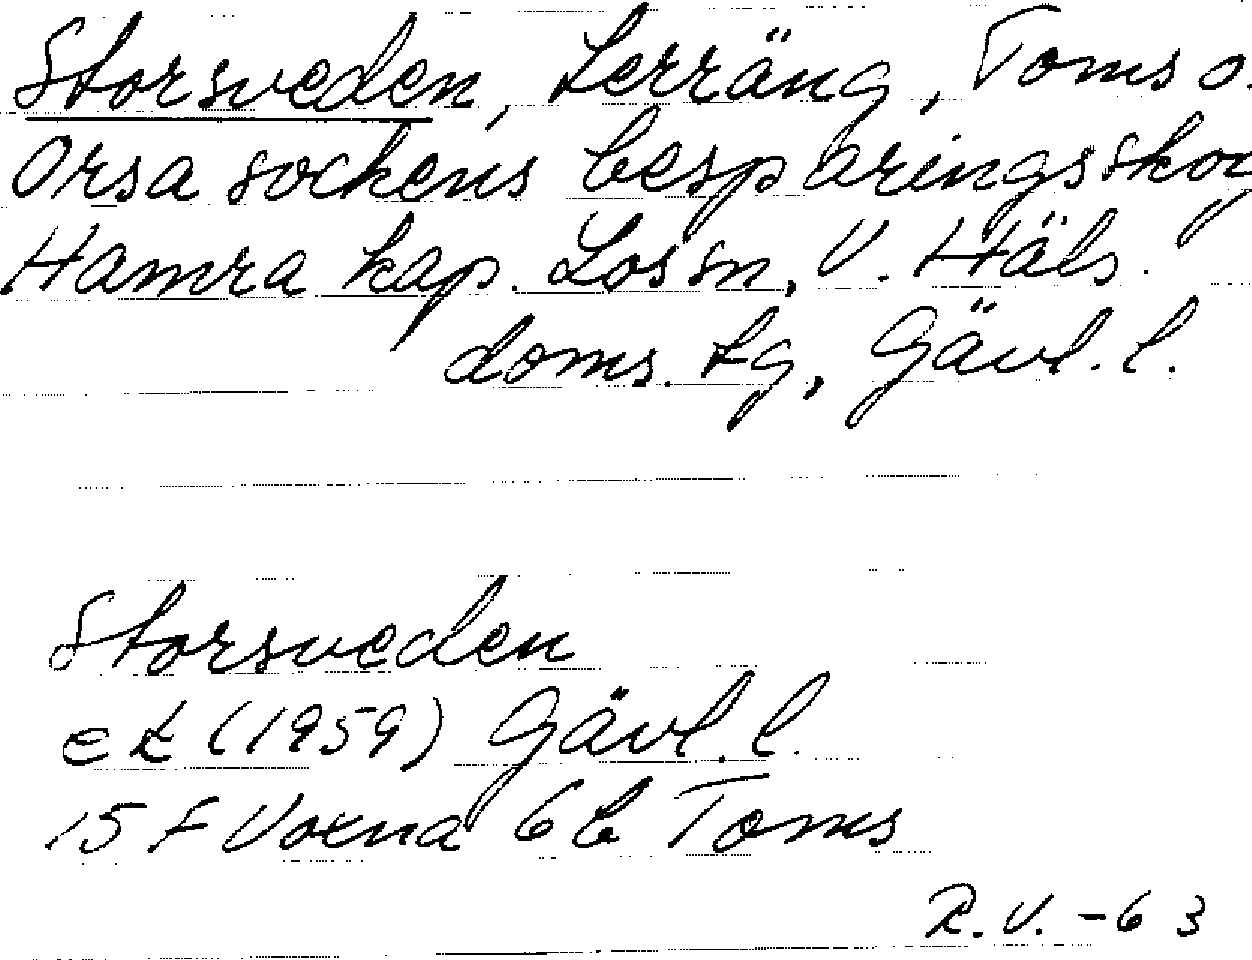 Storsveden, terräng, Toms o.
Orsa sockens besparingsskog
Hamra kap. Los sn, V. Häls.
doms. tg, Gävl. l.
Storsveden
ek (1959) Gävl. l.
15 F Voxna 6 b Toms
R. V. -63